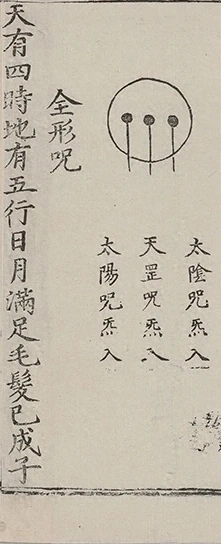 太陰咒炁入
天罡咒炁入
太陽咒炁入
全形咒
天有四時地有五行日月滿足毛髮已成子